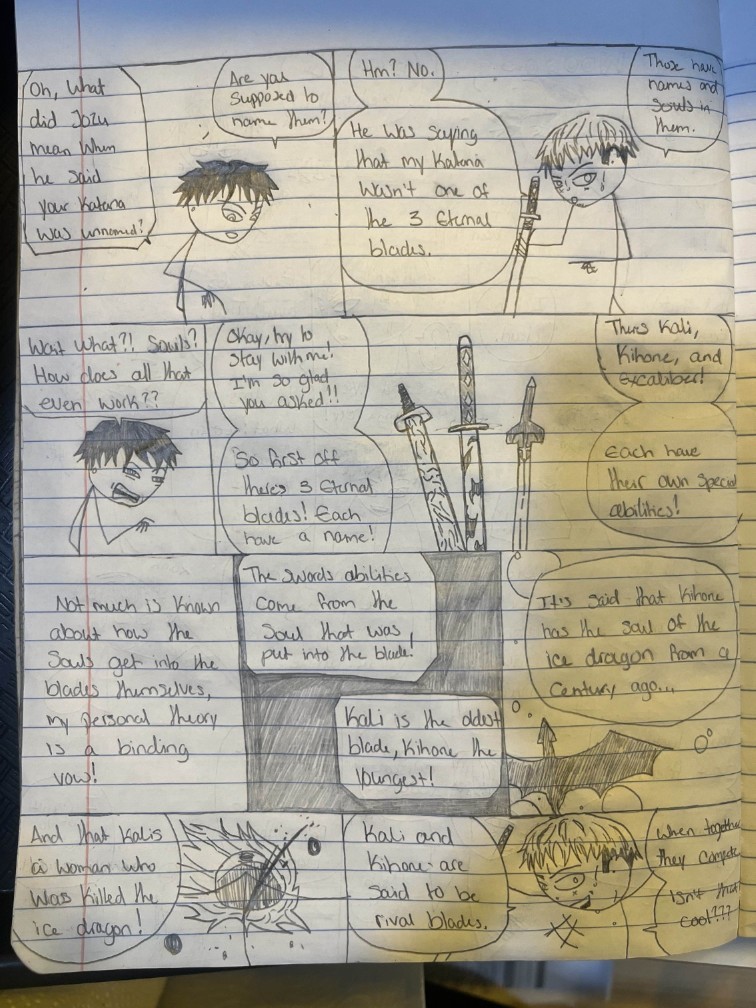 Oh, What
did Jozu
mean when
he said
your Katana
was unnamed?
Are you
supposed to
name them?
Hm? No.
He was saying
that my Katana
wasn't one of
the 3 Eternal
blades.
Those have
names and
souls in
them.
Wait what?! Souls?
How does all that
even work??
Okay, try to
stay with me!
I'm so glad
you asked!!
So first off
theres 3 Eternal
blades! Each
have a name!
Thers Kali,
Kihone, and
Excaliber!
Each have
their own special
abilities!
Not much is known
about how the
Souls get into the
blades themselves,
my personal theory
is a binding
vow!
The swords abilities
come from the
Soul that was
put into the blade!
Kali is the oldest
blade, Kihone the
youngest!
It's said that Kihone
has the soul of the
ice dragon from a
century ago...
And that Kalis
a woman who
was killed the
ice dragon!
Kali and
Kihone are
said to be
rival blades.
When together
they compete
isn't that
cool???